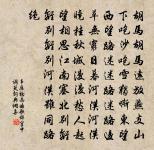 胡馬胡馬遠放燕支山
下跑沙跑雪獨嘶東望
西望路迷迷路迷路邊
草無窮日暮河漢河漢
曉挂秋城漫漫愁人起
望相思江南塞北別離
離別離別河漢雖同路
絕